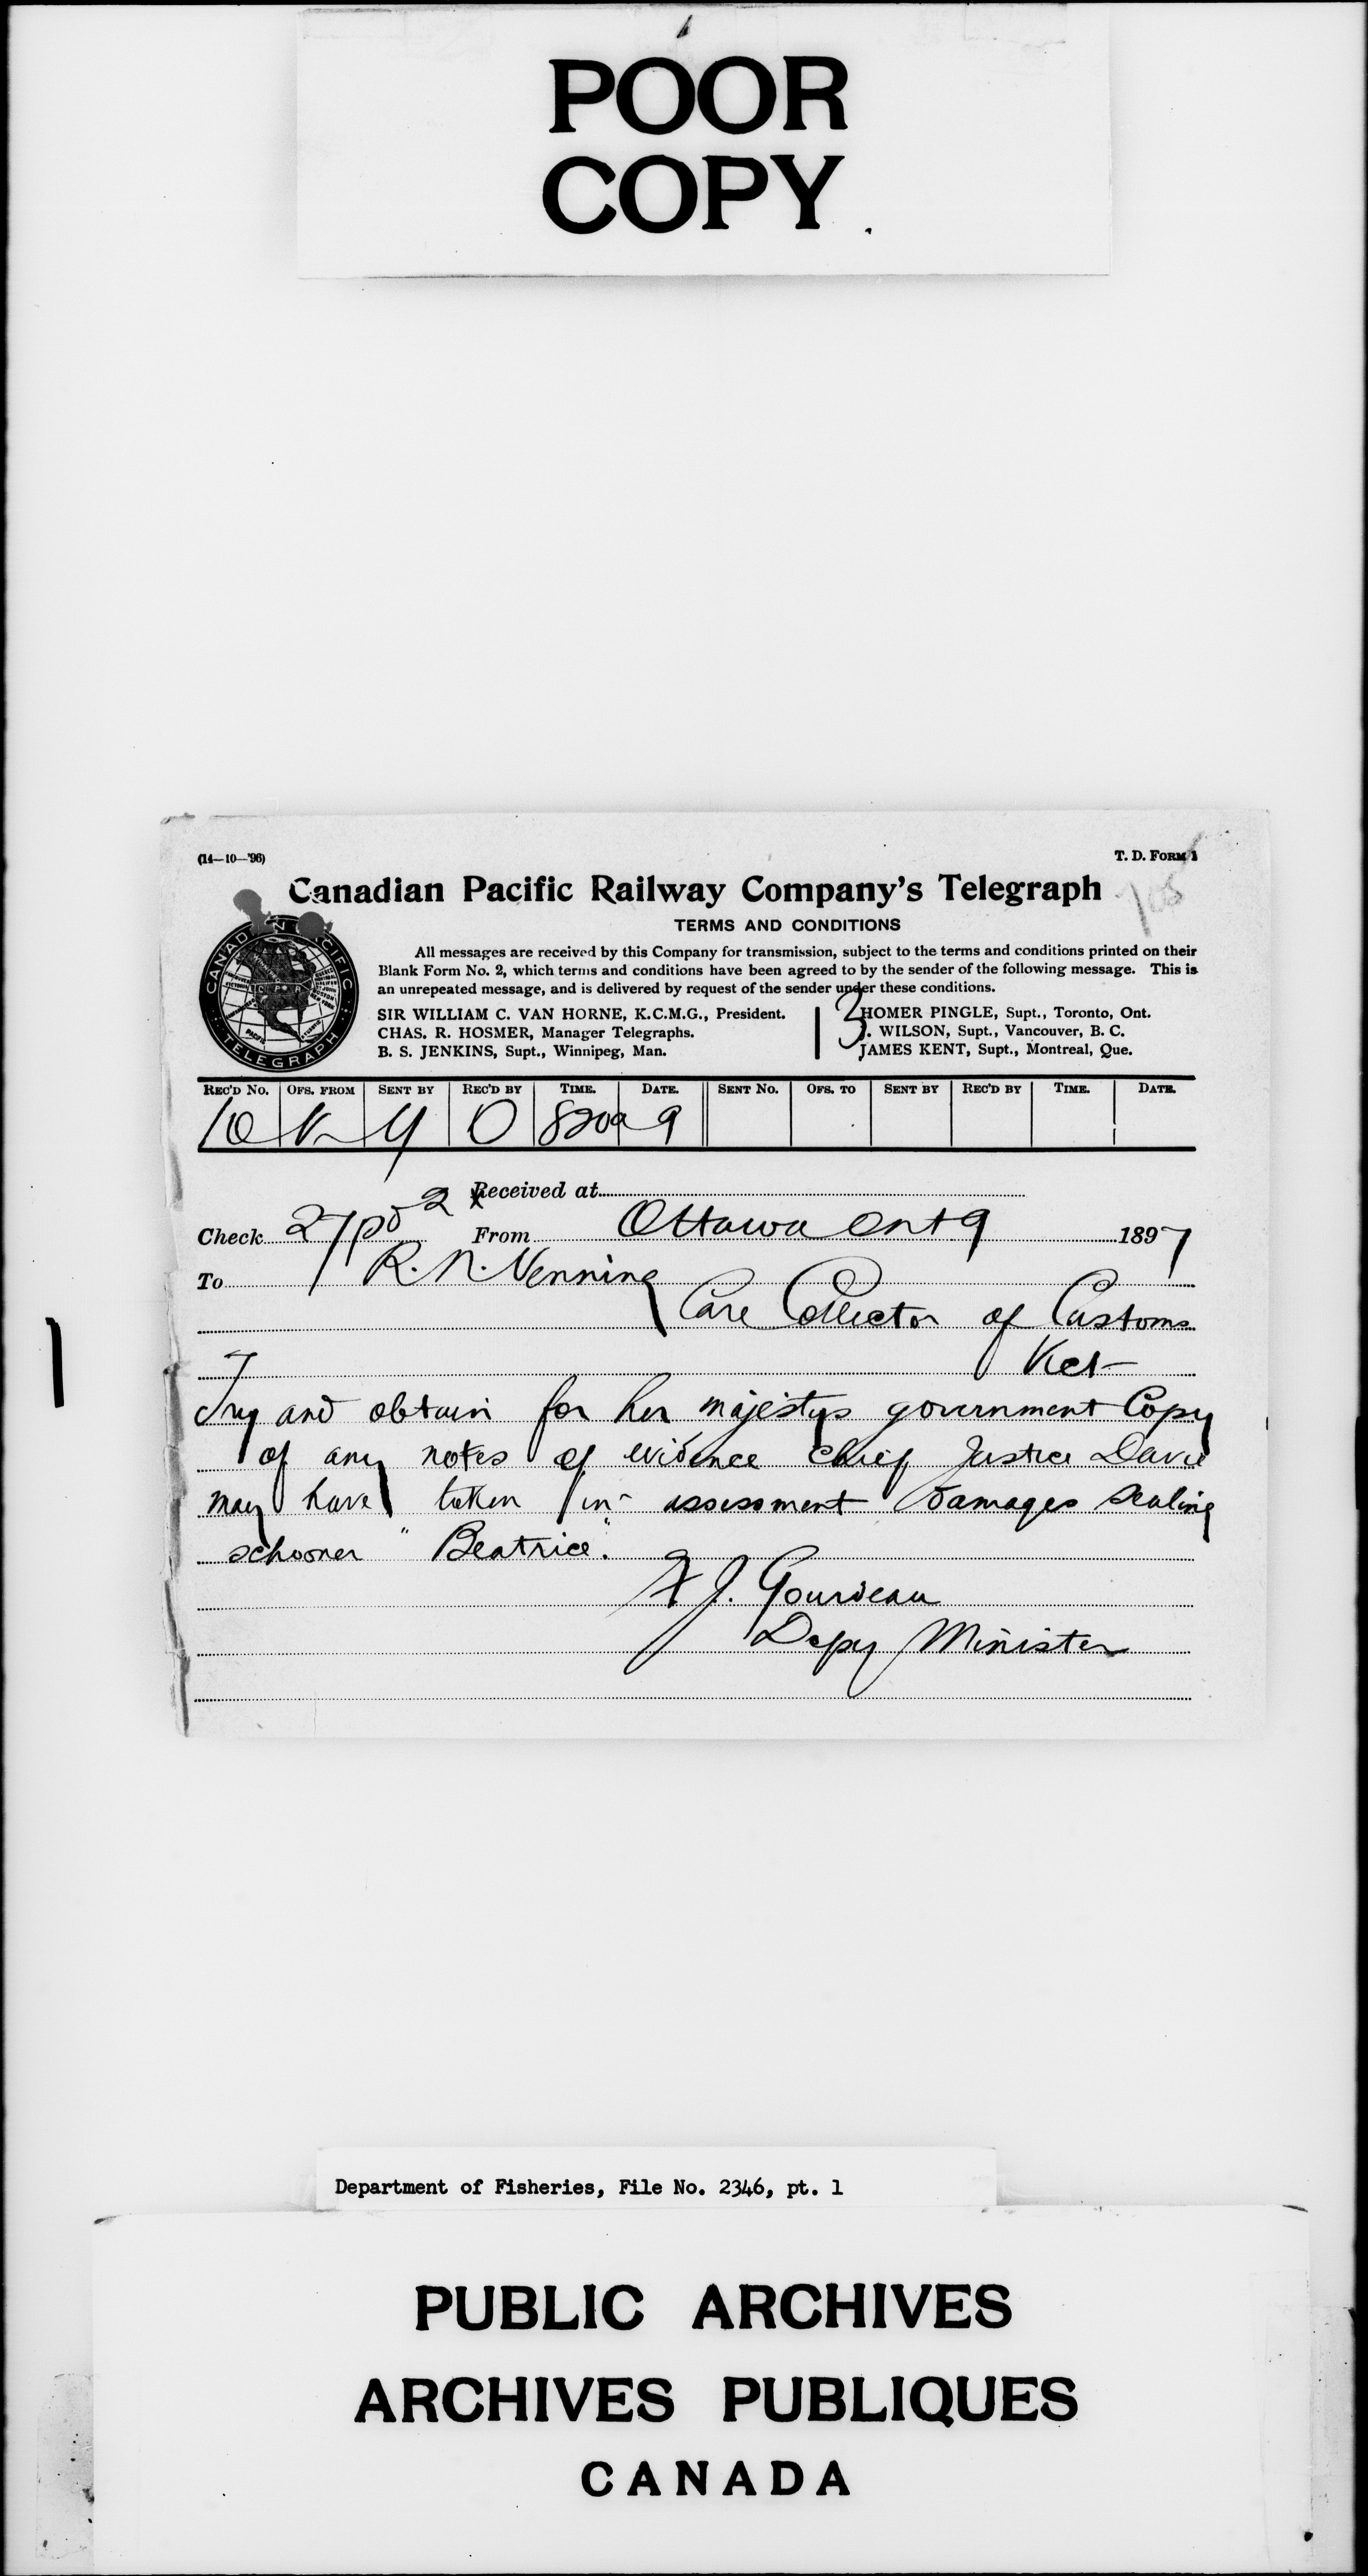 POOR
COPY
(14—10—'96)
T. D. FORM 1
Canadian Pacific Railway Company's Telegraph
TERMS AND CONDITIONS
All messages are received by this Company for transmission, subject to the terms and conditions printed on their
Blank Form No. 2, which terms and conditions have been agreed to by the sender of the following message. This is
an unrepeated message, and is delivered by request of the sender under these conditions.
SIR WILLIAM C. VAN HORNE, K.C.M.G., President.
CHAS. R. HOSMER, Manager Telegraphs.
B. S. JENKINS, Supt., Winnipeg, Man.
3
HOMER PINGLE, Supt., Toronto, Ont.
J. WILSON, Supt., Vancouver, B. C.
JAMES KENT, Supt., Montreal, Que.
CANADIAN PACIFIC TELEGRAPH
REC'D No. OFS. FROM SENT BY REC'D BY TIME. DATE. SENT No. OFS. TO SENT BY REC'D BY TIME. DATE.
10 O 820a 9
Received at
Check 27 pd 2 From Ottawa Ont 9 1897
To R. N. Venning
Care Collector of Customs
Try and obtain for her majestys government Copy
of any notes of evidence chief Justice Davie
may have taken in assessment damages sealing
schooner "Beatrice".
F J. Gourdeau
Depy Minister
Department of Fisheries, File No. 2346, pt. 1
PUBLIC ARCHIVES
ARCHIVES PUBLIQUES
CANADA